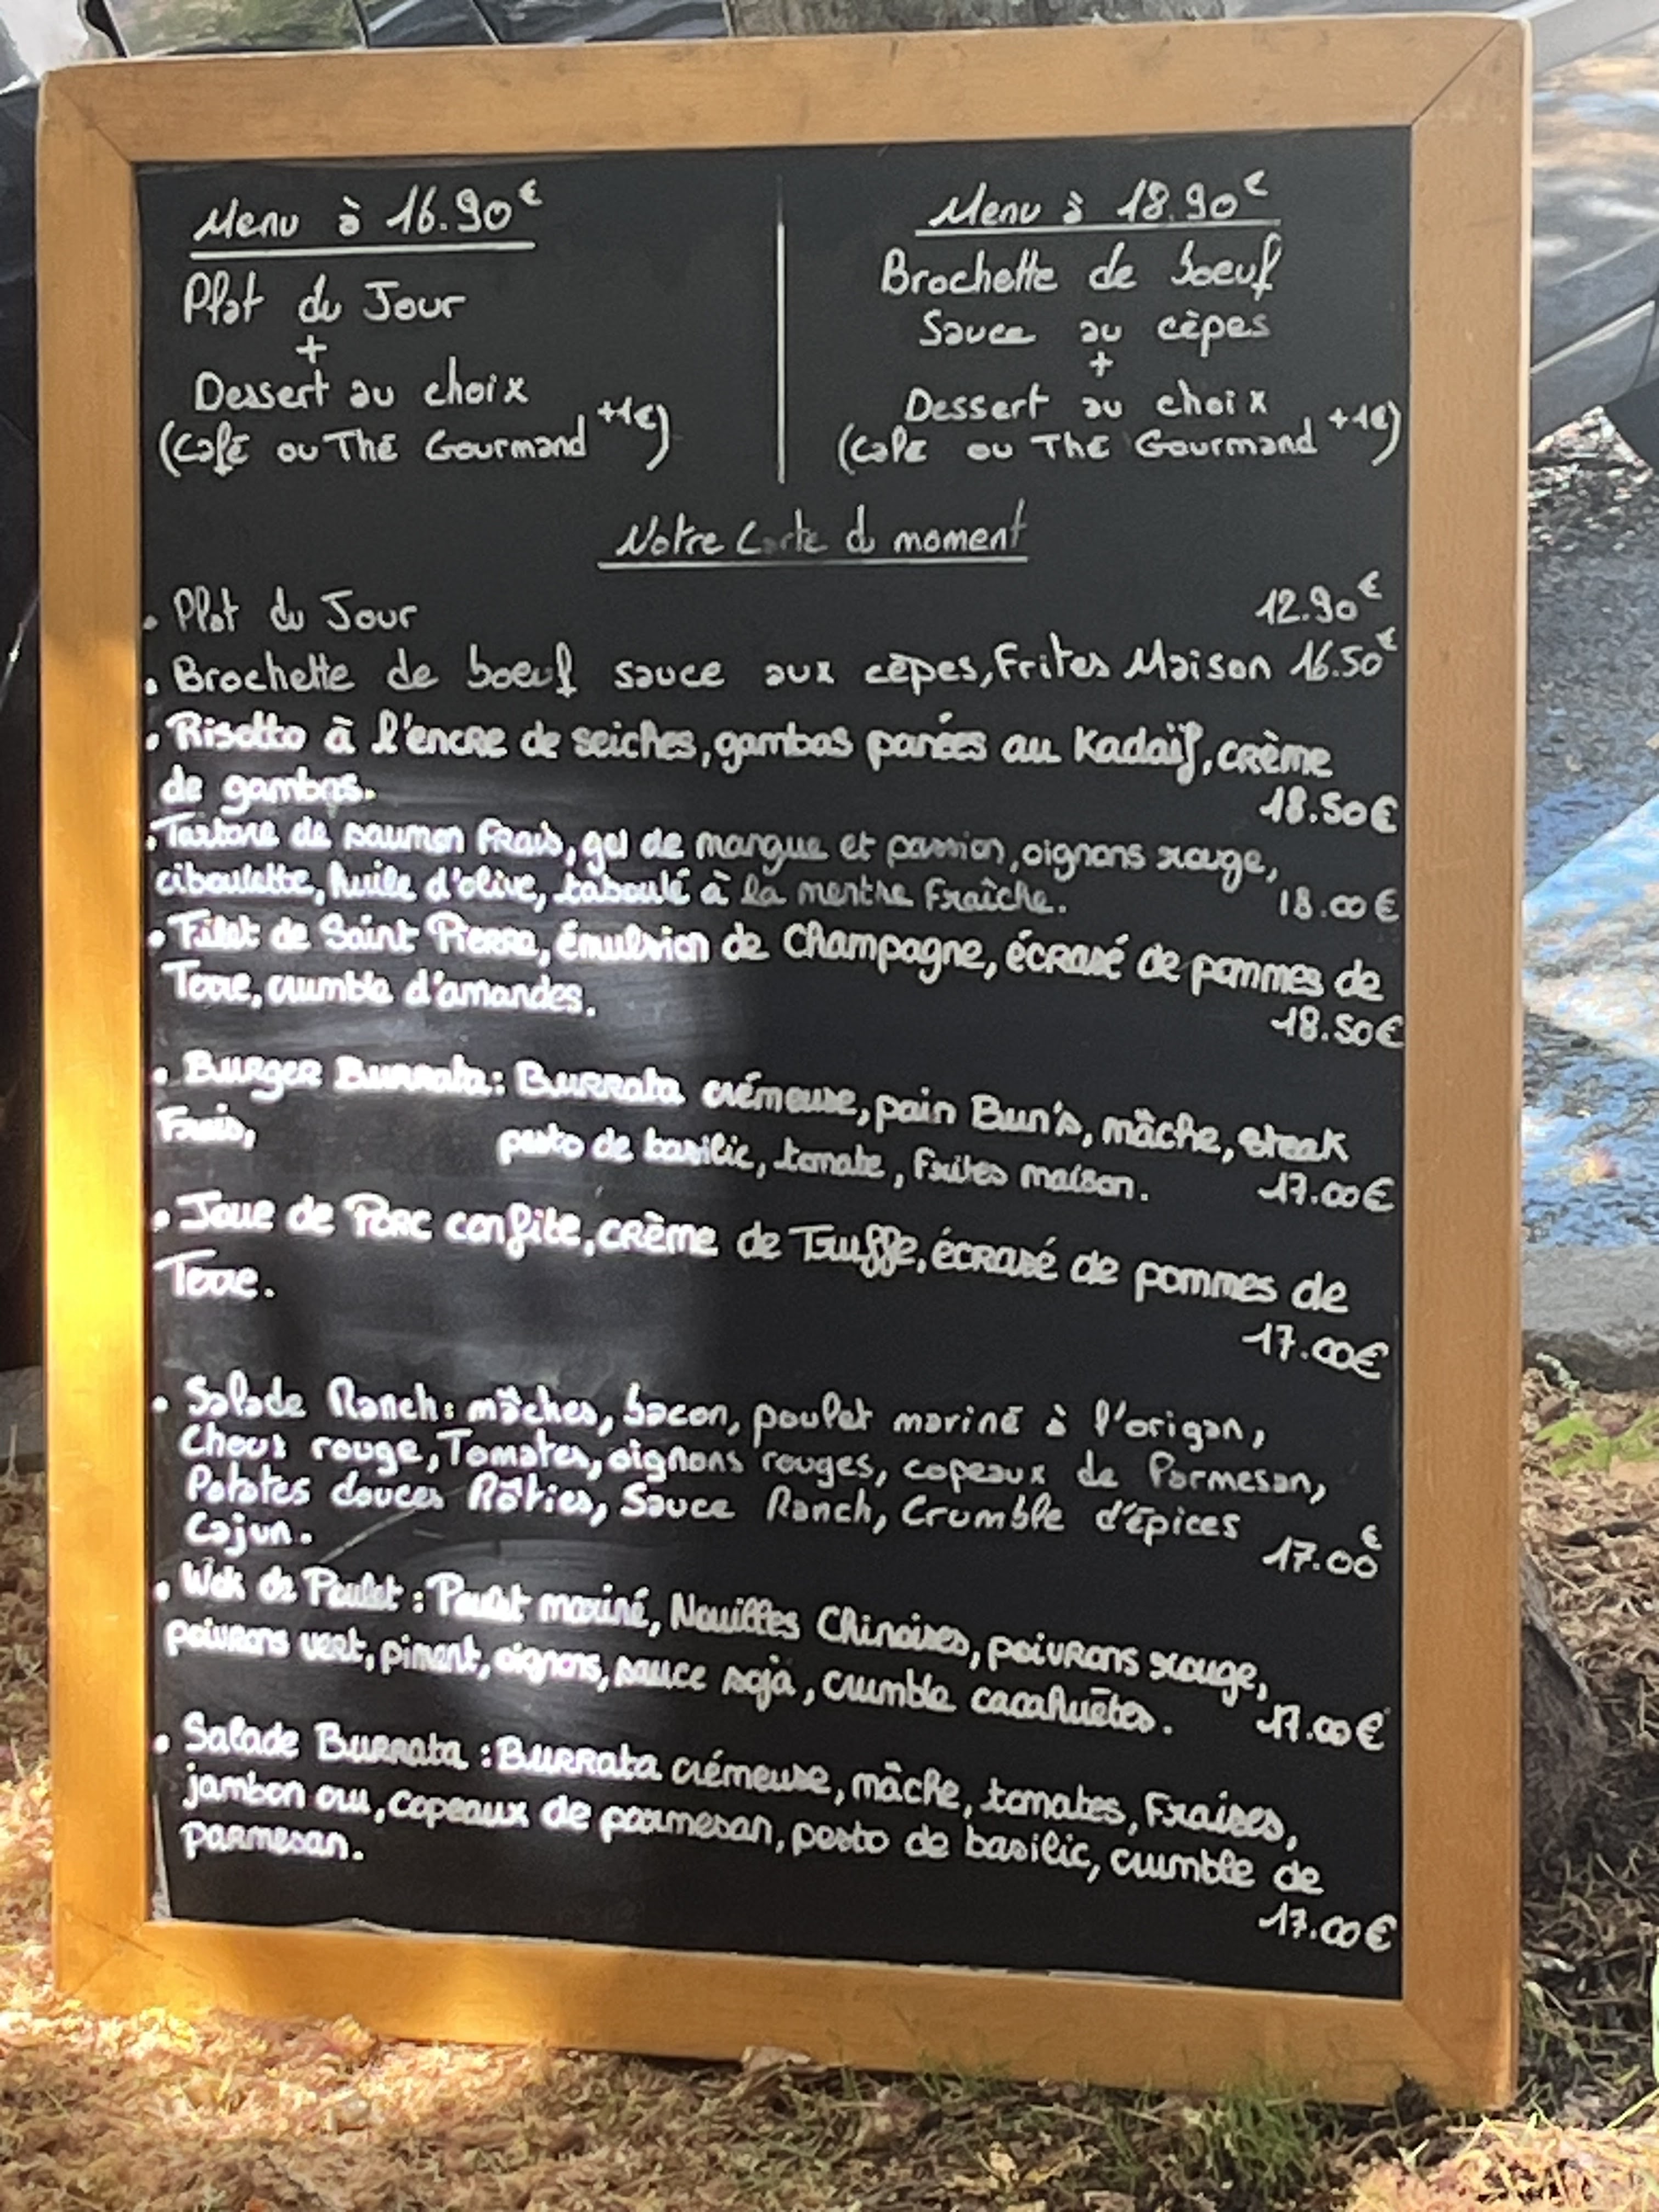 Menu à 16.90€
Plat du Jour
+
Dessert au choix
(Café ou Thé Gourmand +1€)
Menu à 18.90€
Brochette de boeuf
Sauce au cèpes
+
Dessert au choix
(Café ou Thé Gourmand +1€)
Notre Carte du moment
• Plat du Jour 12.90€
• Brochette de boeuf sauce aux cèpes, Frites Maison 16.50€
• Risotto à l'encre de seiches, gambas panées au Kadaïf, crème
de gambas. 18.50€
• Tartare de saumon frais, gel de mangue et passion, oignons rouge,
ciboulette, huile d'olive, taboulé à la menthe Fraîche. 18.00€
• Filet de Saint Pierre, émulsion de Champagne, écrasé de pommes de
Terre, crumble d'amandes. 18.50€
• Burger Burrata : Burrata crémeuse, pain Bun's, mâche, steak
Frais, pesto de basilic, tomate, Frites maison. 17.00€
• Joue de Porc confite, crème de Truffe, écrasé de pommes de
Terre. 17.00€
• Salade Ranch : mâches, bacon, poulet mariné à l'origan,
Choux rouge, Tomates, oignons rouges, copeaux de Parmesan,
Patates douces Rôties, Sauce Ranch, Crumble d'épices
Cajun. 17.00€
• Wok de Poulet : Poulet mariné, Nouilles Chinoises, poivrons rouge,
poivrons vert, piment, oignons, sauce soja, crumble cacahuètes. 17.00€
• Salade Burrata : Burrata crémeuse, mâche, tomates, Fraises,
jambon cru, copeaux de parmesan, pesto de basilic, crumble de
parmesan. 17.00€